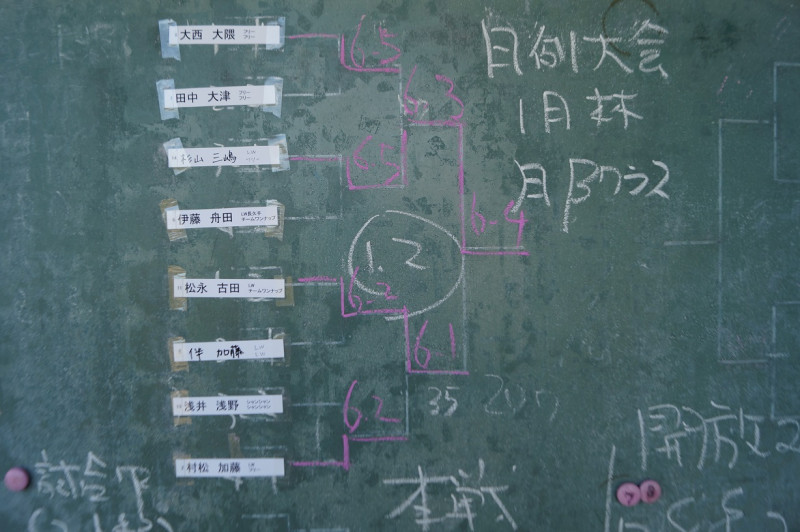 大西 大隈 フリー フリー
田中 大津 フリー フリー
杉山 三嶋 LW フリー
伊藤 舟田 LW長久手 チームワンナップ
松永 古田 LW チームワンナップ
伴 加藤
浅井 浅野 シャンシャン シャンシャン
村松 加藤 LW フリー
6-5
6-3
6-5
6-4
6-2
6-1
6-2
1.2
月例大会
1月 林
月 βクラス
35
試合中
本戦
開放2
7 8